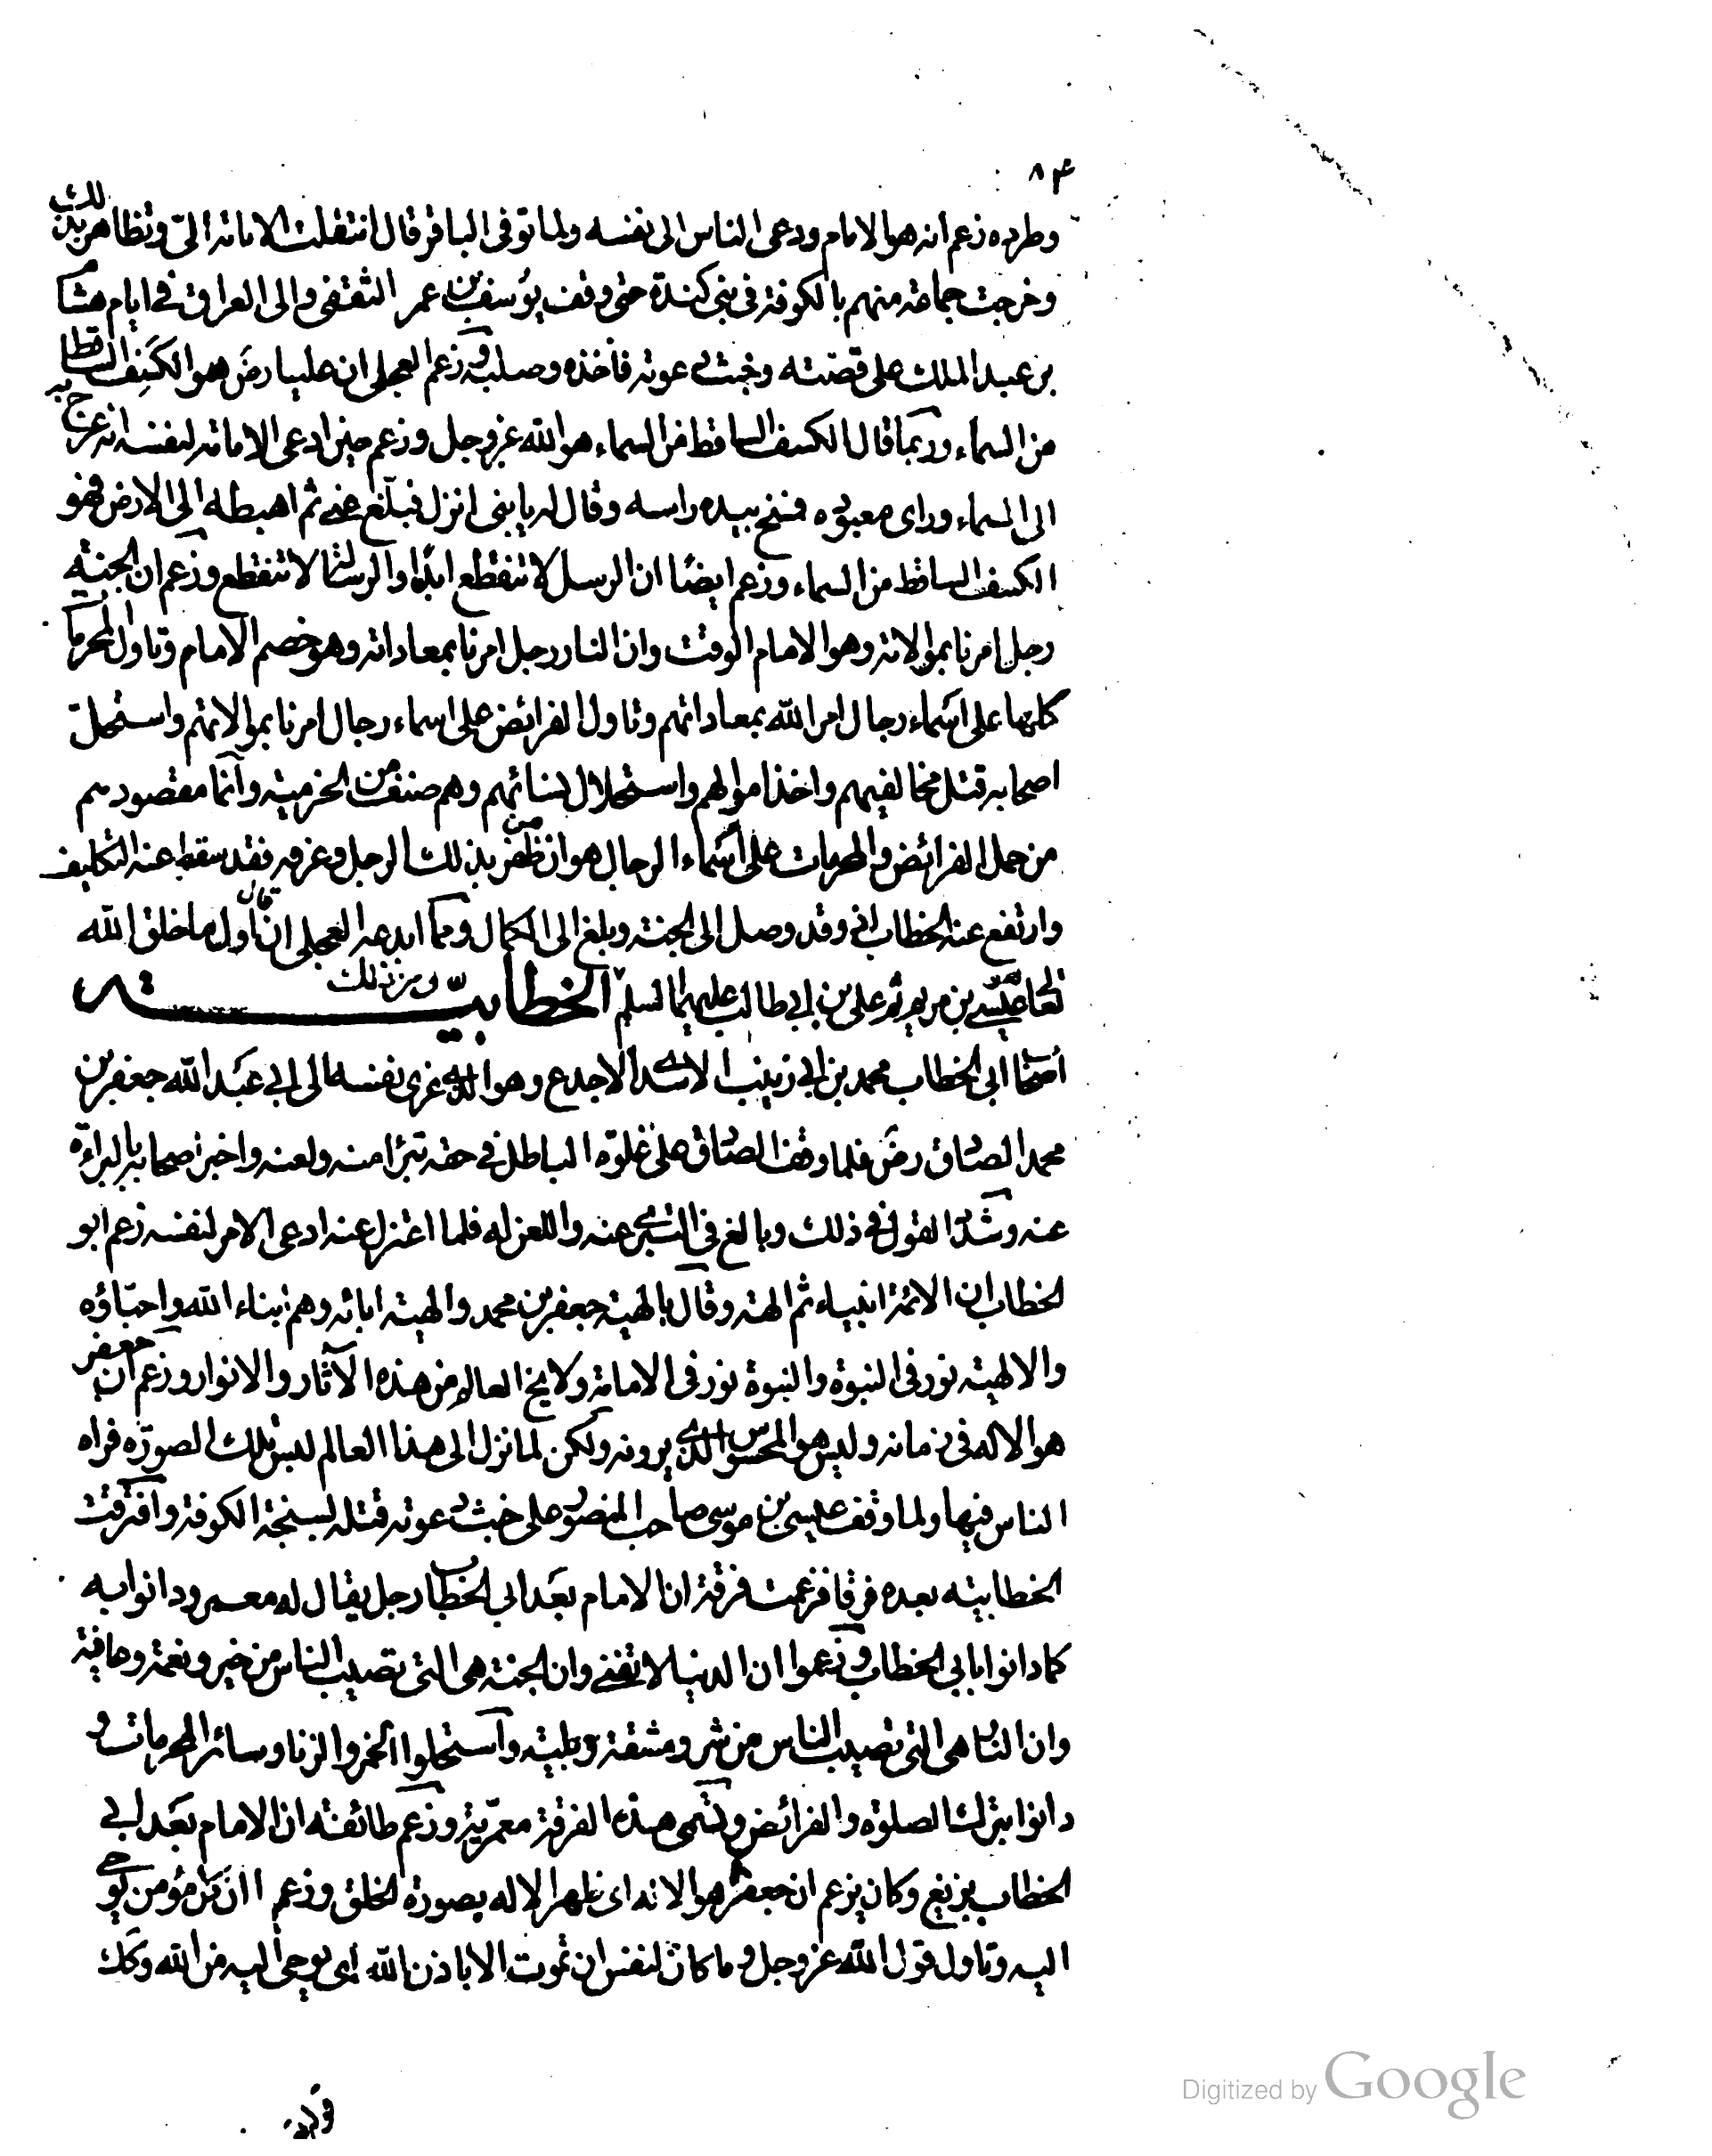 ٨٤
وطرده زعم انه هو الامام ودعى الناس الى نفسه ولما توفى الباقر قال انتقلت الامامة الىّ وتظاهر بذلك
وخرجت جماعة منهم بالكوفة فى بنى كندة حتى وقف يوسف بن عمر الثقفى والى العراق فى ايام هشام
بن عبد الملك على قصته وخبث دعوته فاخذه وصلبه وزعم العجلى ان عليا رضَ هو الكسف الساقط
من السماء وربما قال الكسف الساقط من السماء هو الله عز وجل وزعم حين ادعى الامامة لنفسه انه عرج به
الى السماء وراى معبوده فمسح بيده راسه وقال له يا بنى انزل فبلّغ عنى ثم اهبطه الى الارض فهو
الكسف الساقط من السماء وزعم ايضًا ان الرسل لا تنقطع ابدًا والرسالة لا تنقطع وزعم ان الجنة
رجل امرنا بموالاته وهو الامام الوقت وان النار رجل امرنا بمعاداته وهو خصم الامام وتاول المحرمات
كلها على اسماء رجال امر الله بمعاداتهم وتاول الفرائض على اسماء رجال امرنا بموالاتهم واستحلّ
اصحابه قتل مخالفيهم واخذ اموالهم واستحلال نسائهم وهم صنف من الخرمية وانما مقصودهم
من حمل الفرائض والمحرمات على اسماء الرجال هو ان من ظفر بذلك الرجل وعرفه فقد سقط عنه التكليف
وارتفع عنه الخطاب اذ وقد وصل الى الجنة وبلغ الى الكمال ومما ابدعه العجلى ان قال اول ما خلق الله
تعالى عيسى بن مريم ثم على بن ابى طالب عليهما السلم الخطابيّة ومن ذلك
اصحاب ابى الخطاب محمد بن ابى زينب الاسدى الاجدع وهو الذى عزى نفسه الى ابى عبد الله جعفر بن
محمد الصادق رضَ فلما وقف الصادق على غلوّه الباطل فى حقه تبرّا منه ولعنه واخبر اصحابه بالبراءة
عنه وشدّد القول فى ذلك وبالغ فى التبرى عنه واللعن له فلما اعتزل عنه ادعى الامر لنفسه زعم ابو
الخطاب ان الائمة انبياء ثم الهة وقال بالهية جعفر بن محمد والهية ابائه وهم ابناء الله واحبّاؤه
والالهية نور فى النبوة والنبوة نور فى الامامة ولا يخ العالم من هذه الآثار والانوار وزعم ان جعفر
هو الاله فى زمانه وليس هو المحسوس الذى يرونه ولكن لما نزل الى هذا العالم لبس تلك الصورة فراه
الناس فيها ولما وقف عيسى بن موسى صاحب المنصور على خبث دعوته قتله بسبخة الكوفة وافترقت
الخطابية بعده فرقا فزعمت فرقة ان الامام بعد ابى الخطاب رجل يقال له معمر ودانوا به
كما دانوا بابى الخطاب وزعموا ان الدنيا لا تفنى وان الجنة هى التى تصيب الناس من خير ونعمة وعافية
وان النار هى التى تصيب الناس من شر ومشقة وبلية واستحلوا الخمر والزنا وسائر المحرمات و
دانوا بترك الصلوة والفرائض وتسمى هذه الفرقة معمّرية وزعم طائفة ان الامام بعد ابى
الخطاب بزيغ وكان يزعم ان جعفرا هو الاله اى ظهر الاله بصورة الخلق وزعم ان كل مؤمن يوحى
اليه وتاول قول الله عز وجل وما كان لنفس ان تموت الا باذن الله اى يوحى اليه من الله وكك